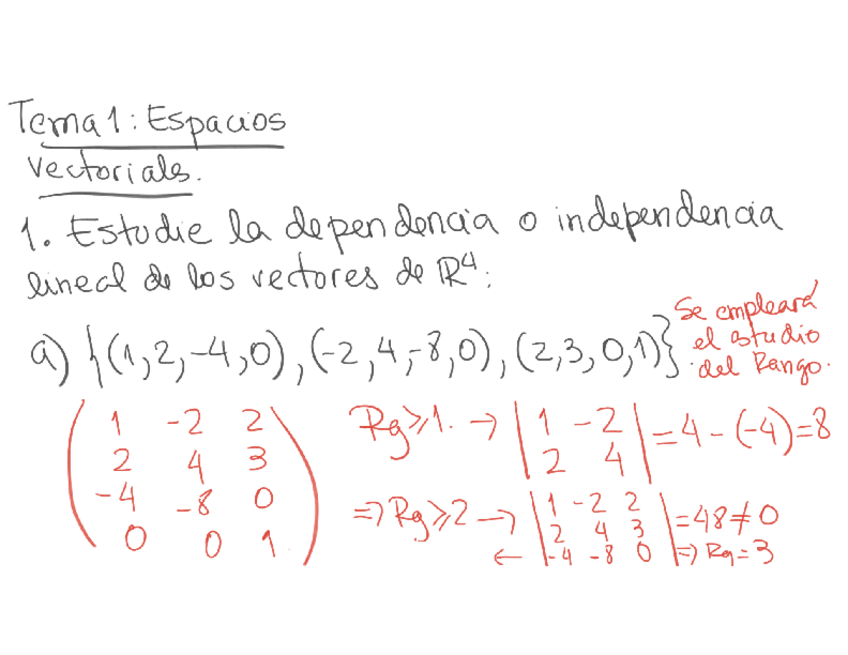 Tema 1: Espacios
vectoriales.
1. Estudie la dependencia o independencia
lineal de los vectores de ℝ⁴:
a) {(1,2,-4,0), (-2,4,-8,0), (2,3,0,1)}
Se empleará
el estudio
del Rango.
1 -2 2
2 4 3
-4 -8 0
0 0 1
Rg≥1. → |1 -2| = 4 - (-4) = 8
|2 4|
⇒ Rg≥2 → |1 -2 2|
|2 4 3| = 48 ≠ 0
← |-4 -8 0| ⇒ Rg = 3